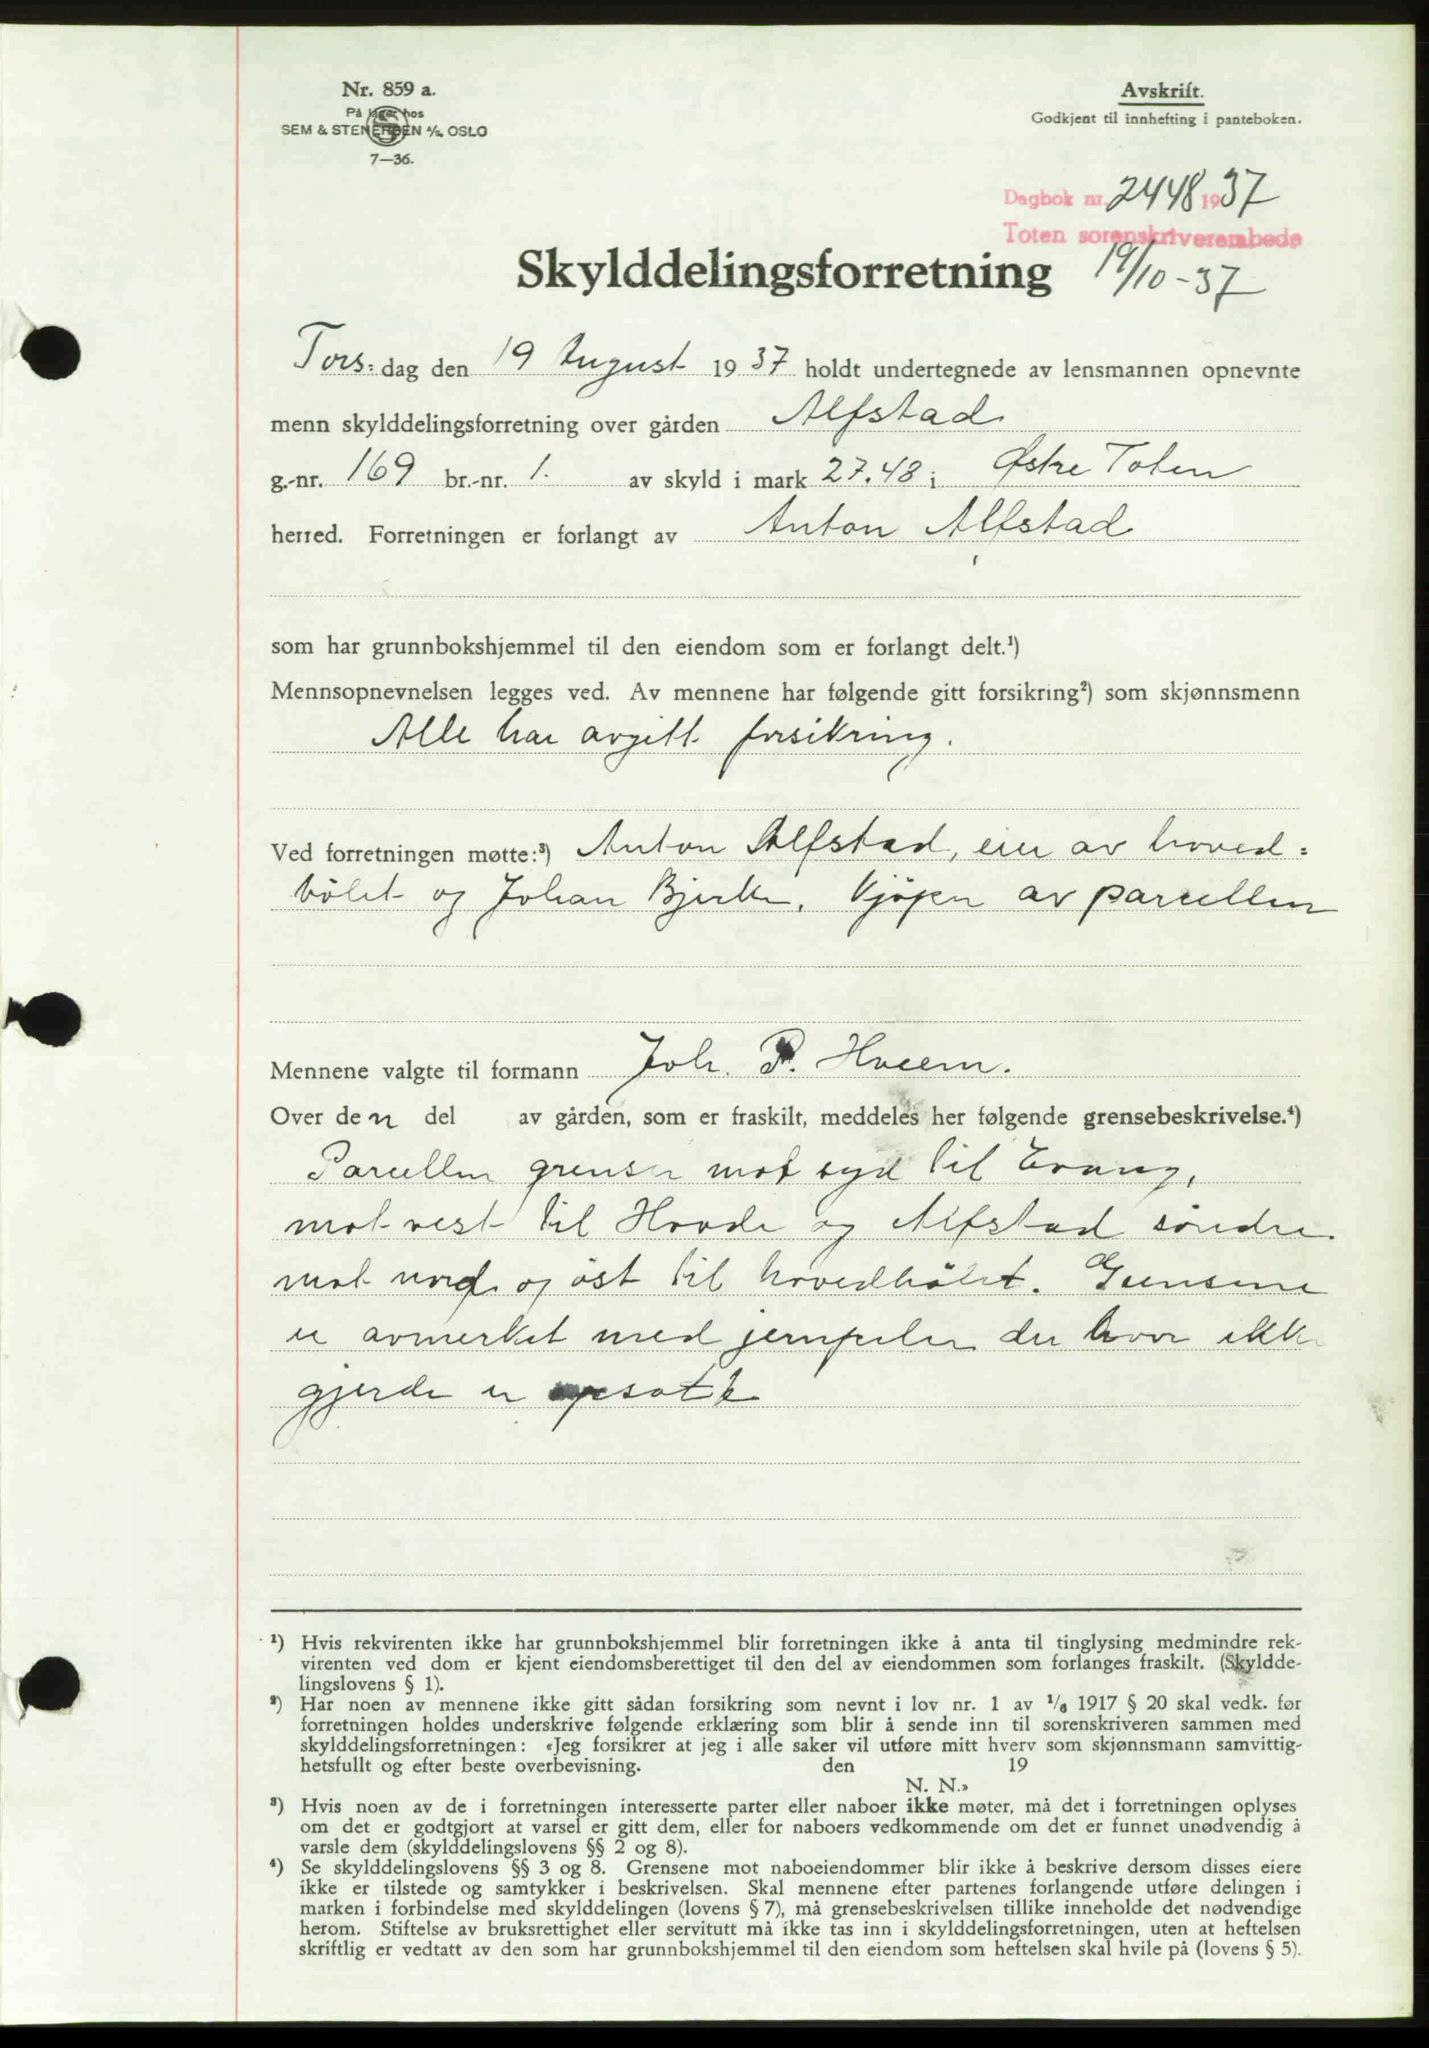 Nr. 859 a.
På lager hos
SEM & STENERSEN A/S, OSLO
7—36.
Avskrift.
Godkjent til innhefting i panteboken.
Dagbok nr. 2448 1937
Toten sorenskriverembede
19/10-37
Skylddelingsforretning
Tors: dag den 19 August 1937 holdt undertegnede av lensmannen opnevnte
menn skylddelingsforretning over gården Alfstad
g.-nr. 169 br.-nr. 1. av skyld i mark 27.48 i Østre Toten
herred. Forretningen er forlangt av Anton Alfstad
som har grunnbokshjemmel til den eiendom som er forlangt delt.¹)
Mennsopnevnelsen legges ved. Av mennene har følgende gitt forsikring²) som skjønnsmenn
Alle har avgitt forsikring.
Ved forretningen møtte:³) Anton Alfstad, eier av hoved=
bölet og Johan Bjerke, kjöper av parcellen
Mennene valgte til formann Joh. P. Hveem.
Over den del av gården, som er fraskilt, meddeles her følgende grensebeskrivelse.⁴)
Parcellen grenser mot syd til Evang,
mot vest til Hovde og Alfstad söndre
mot nord og öst til hovedbölet. Grensene
er avmerket med jernpeler der hvor ikke
gjerde er opsatt
¹) Hvis rekvirenten ikke har grunnbokshjemmel blir forretningen ikke å anta til tinglysing medmindre rek-
virenten ved dom er kjent eiendomsberettiget til den del av eiendommen som forlanges fraskilt. (Skyldde-
lingslovens § 1).
²) Har noen av mennene ikke gitt sådan forsikring som nevnt i lov nr. 1 av 1/6 1917 § 20 skal vedk. før
forretningen holdes underskrive følgende erklæring som blir å sende inn til sorenskriveren sammen med
skylddelingsforretningen: «Jeg forsikrer at jeg i alle saker vil utføre mitt hverv som skjønnsmann samvittig-
hetsfullt og efter beste overbevisning. den 19
N. N.»
³) Hvis noen av de i forretningen interesserte parter eller naboer ikke møter, må det i forretningen oplyses
om det er godtgjort at varsel er gitt dem, eller for naboers vedkommende om det er funnet unødvendig å
varsle dem (skylddelingslovens §§ 2 og 8).
⁴) Se skylddelingslovens §§ 3 og 8. Grensene mot naboeiendommer blir ikke å beskrive dersom disses eiere
ikke er tilstede og samtykker i beskrivelsen. Skal mennene efter partenes forlangende utføre delingen i
marken i forbindelse med skylddelingen (lovens § 7), må grensebeskrivelsen tillike inneholde det nødvendige
herom. Stiftelse av bruksrettighet eller servitutt må ikke tas inn i skylddelingsforretningen, uten at heftelsen
skriftlig er vedtatt av den som har grunnbokshjemmel til den eiendom som heftelsen skal hvile på (lovens § 5).